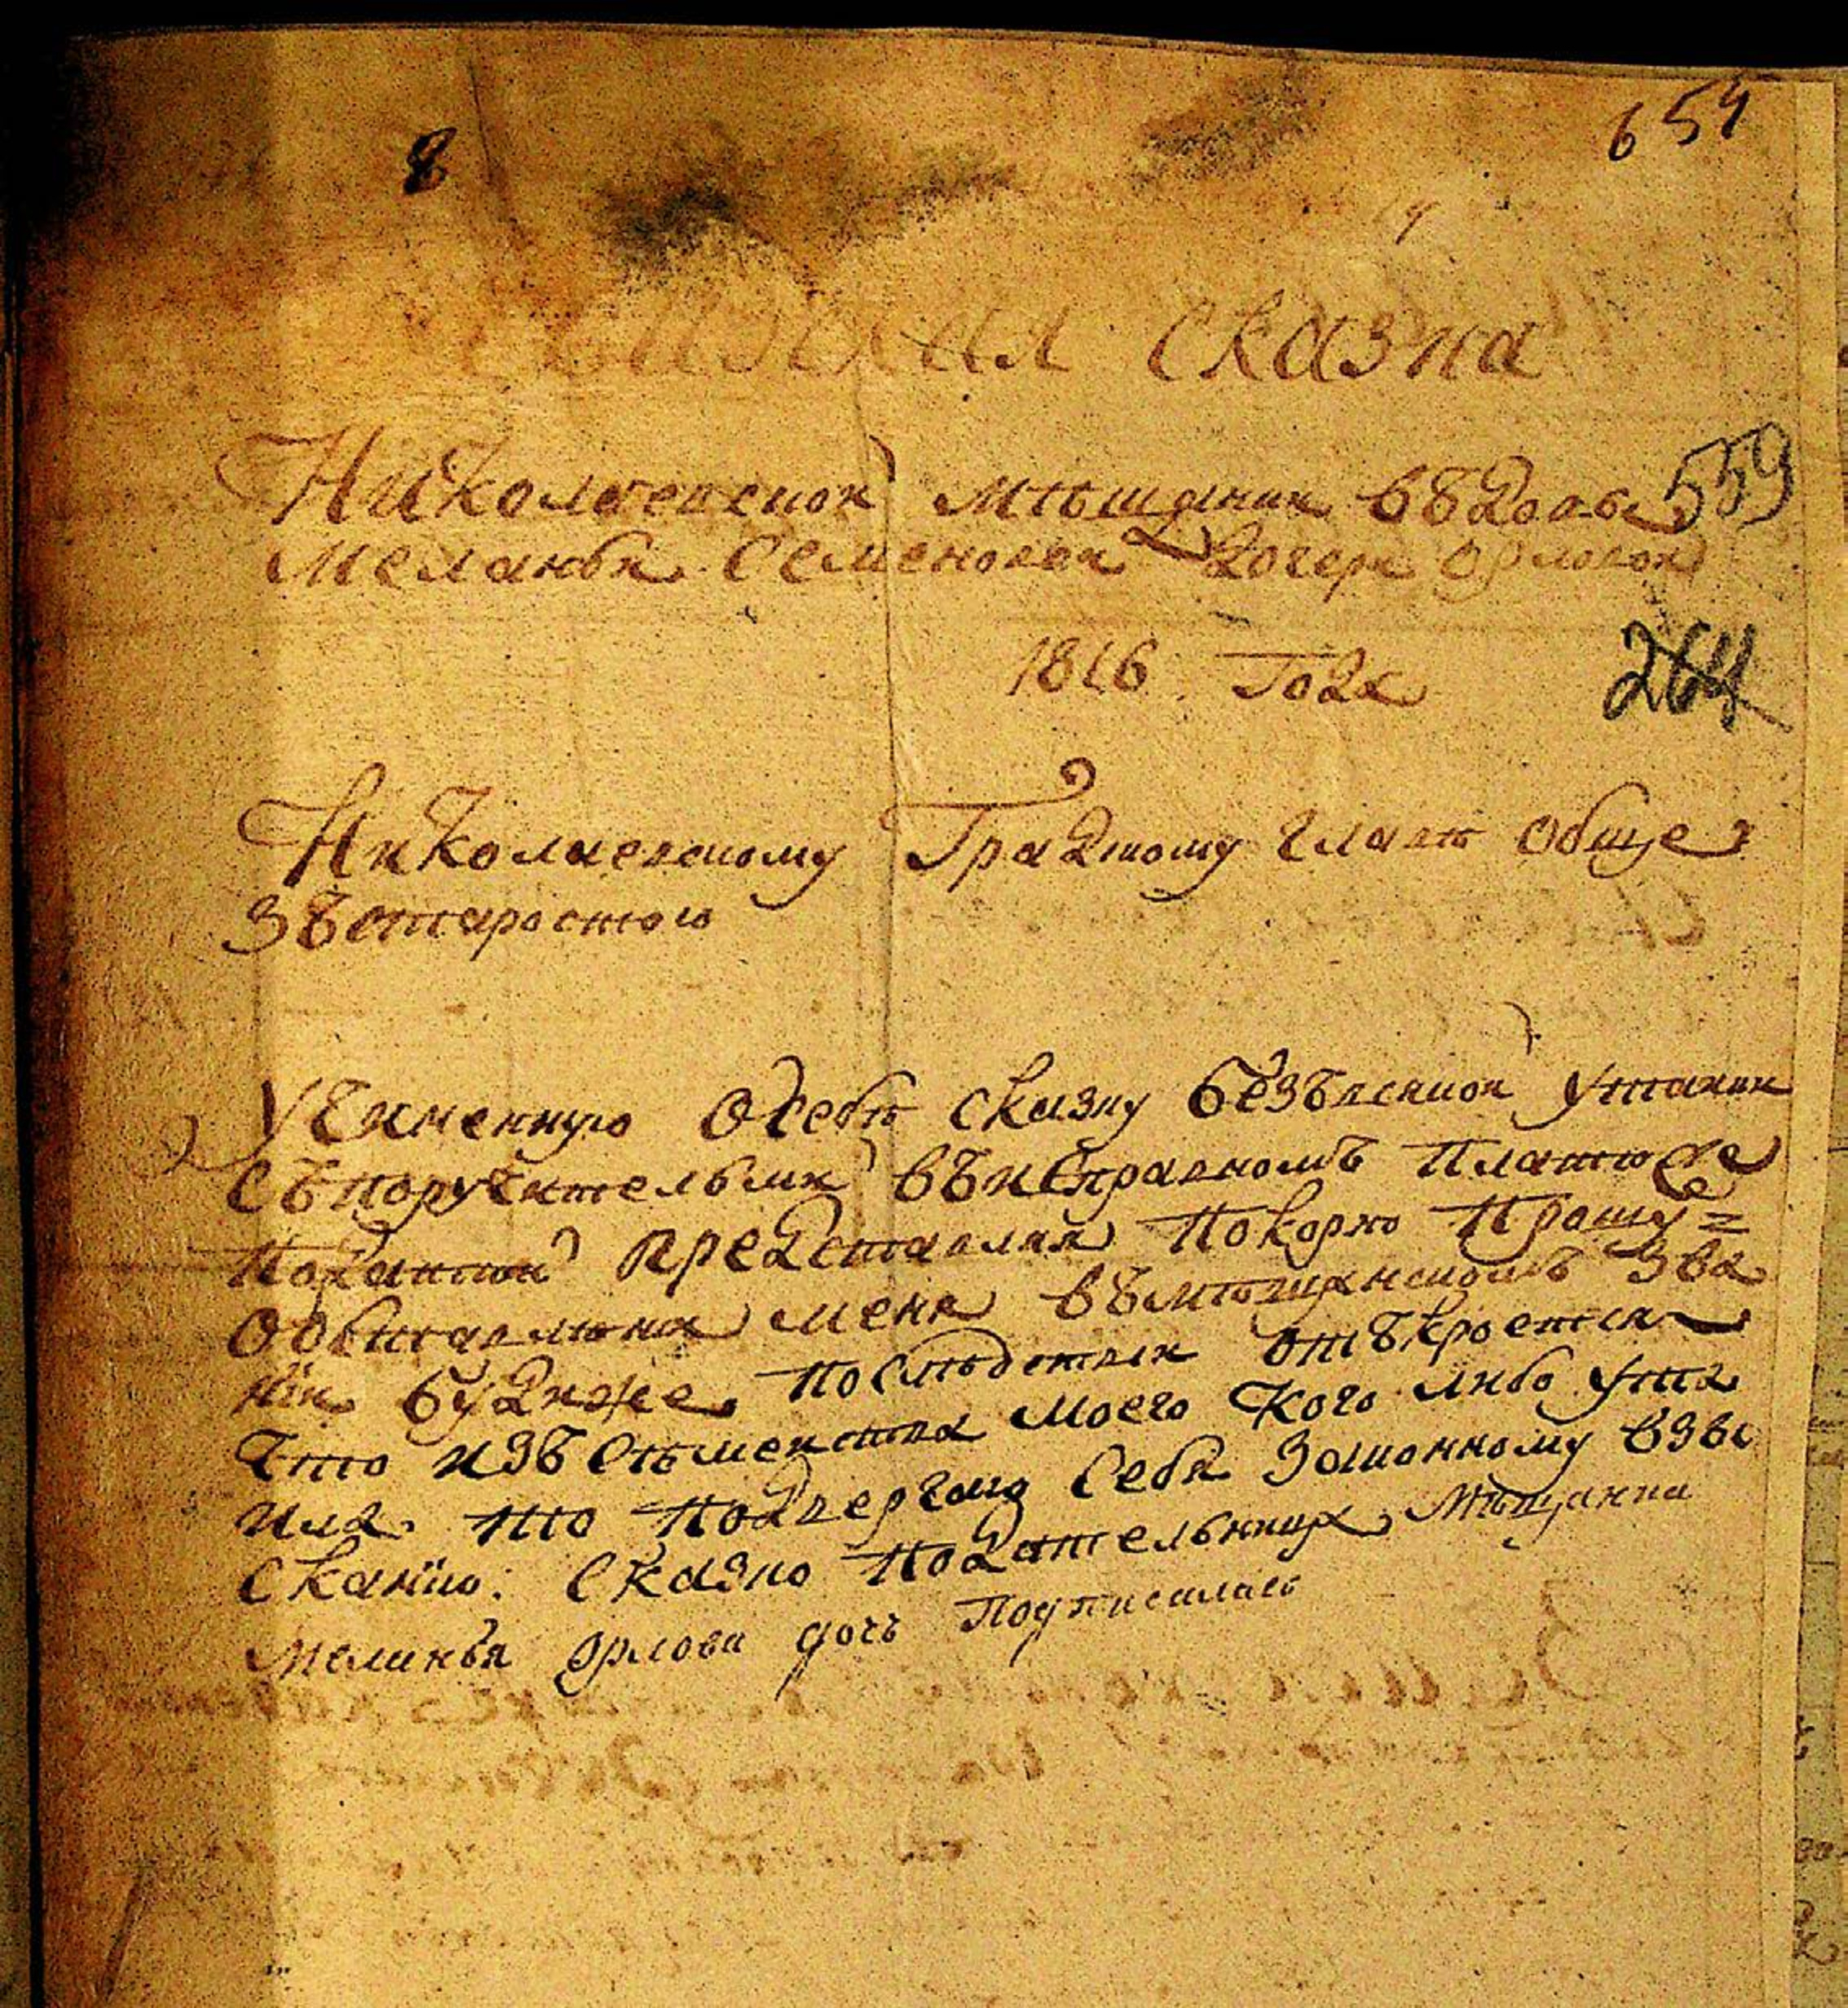 8
654
сказка
Николаевской мѣщанки въдовы 559
Меланьи Семеновеи дочери Орловой
1816 Года 264
Николаевскому Градскому Главѣ обще
Зъстаростою
Учименную осебѣ Сказку безъвсякой утайки
Съпоручительми въисправномъ платѣже
податей представляя покорно прошу =
обоставленіи меня въмѣщанскомъ Зва
ніи будиже впослѣдствіи отъкроется
Что изъ Сѣменства моего Кого либо ута
ила то подвергаю Себя Законному взы
Сканію: Сказко подательница Мѣщанка
Меланья Орлова дочь Подписалась